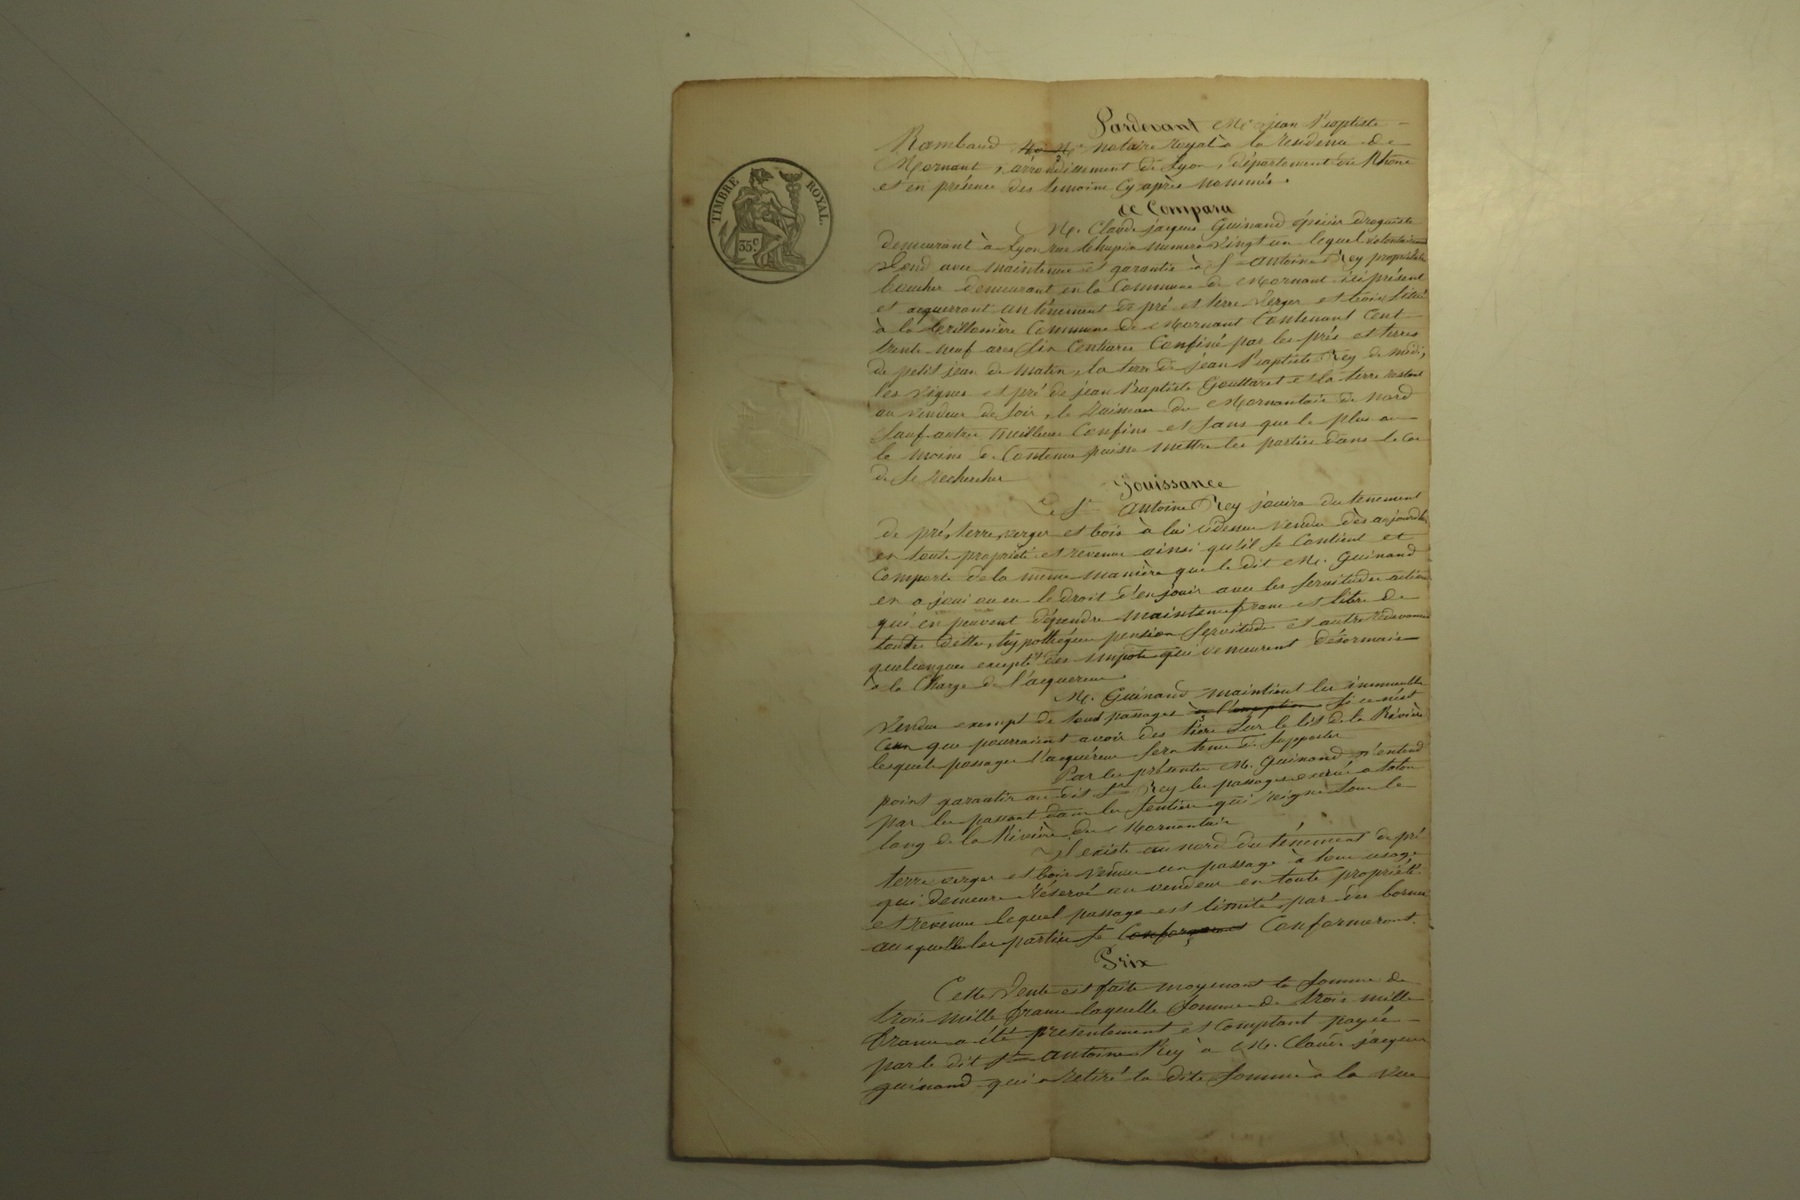 TIMBRE ROYAL
35c
Pardevant Me jean Baptiste
Rambaud notaire royal à la residence de
Mornant, arrondissement de Lyon, département du Rhône
et en présence des temoins cy après nommés.
a Comparu
M. Claude jacques Guinand épicier droguiste
demeurant à Lyon rue numero vingt un lequel volontairement
Vend avec maintenue et garantie à Sr Antoine Rey propriétaire
boucher demeurant en la Commune de Mornant ici présent
et acquerant un tènement de pré et terre verger et bois situé
à la Commune de Mornant Contenant Cent
trente neuf ares six Centiares Confiné par les prés et terres
de petit jean de matin, la terre de jean Baptiste Rey de midi,
les vignes et pré de jean Baptiste Gouttaret et la terre restant
au vendeur de soir, le Ruisseau du Mornantais de nord
sauf autres meilleurs Confins et sans que le plus ou
le moins de Contenue puisse mettre les parties dans le Cas
de se rechercher
Jouissance
Le Sr Antoine Rey jouira du tenement
de pré, terre, verger et bois à lui cidessus vendu dès aujourdhui
en toute propriété et revenu ainsi qu'il se Contient et
Comporte de la même manière que le dit M. Guinand
en a joui ou eu le droit d'en jouir avec les servitudes actives
qui en peuvent dépendre maintenu franc et libre de
toutes dettes, hypothéques pension servitude et autres redevances
quelconques excepté des impots qui demeurent désormais
à la Charge de l'acquereur
M. Guinand maintient les immeubles
Vendus exempt de tous passages à l'exception si ce n'est
Ceux que pourraient avoir des tiers sur le lit de la Rivière
lesquels passages l'acquéreur sera tenu de supporter
Par les présentes M. Guinand n'entend
point garantir au dit Sr Rey les passages exercés à
par les passant dans les sentiers qui règne tout le
long de la Rivière du Mornantais
Il existe au nord du tènement de pré
terre verger et bois vendu un passage à tous usages
qui demeure réservé au vendeur en toute propriété
et revenu lequel passage est limité par des bornes
auxquelles les parties se Conformeront.
Prix
Cette vente est faite moyenant la somme de
trois mille francs laquelle somme de trois mille
francs a été présentement et comptant payée
par le dit Sr Antoine Rey à M. Claude jacques
guinand qui a retiré la dite somme à la vue